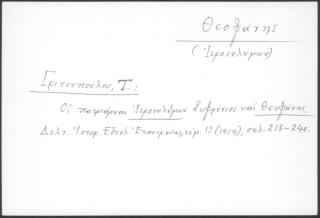 Θεοφάνης
(Ἱεροσολύμων)
Γριτσοπούλου, Τ.:
Οἱ πατριάρχαι Ἱεροσολύμων Σωφρόνιος καὶ Θεοφάνης,
Δελτ. Ἱστορ. Ἐθνολ. Ἑταιρείας, τόμ. 13 (1959), σελ. 218-240.